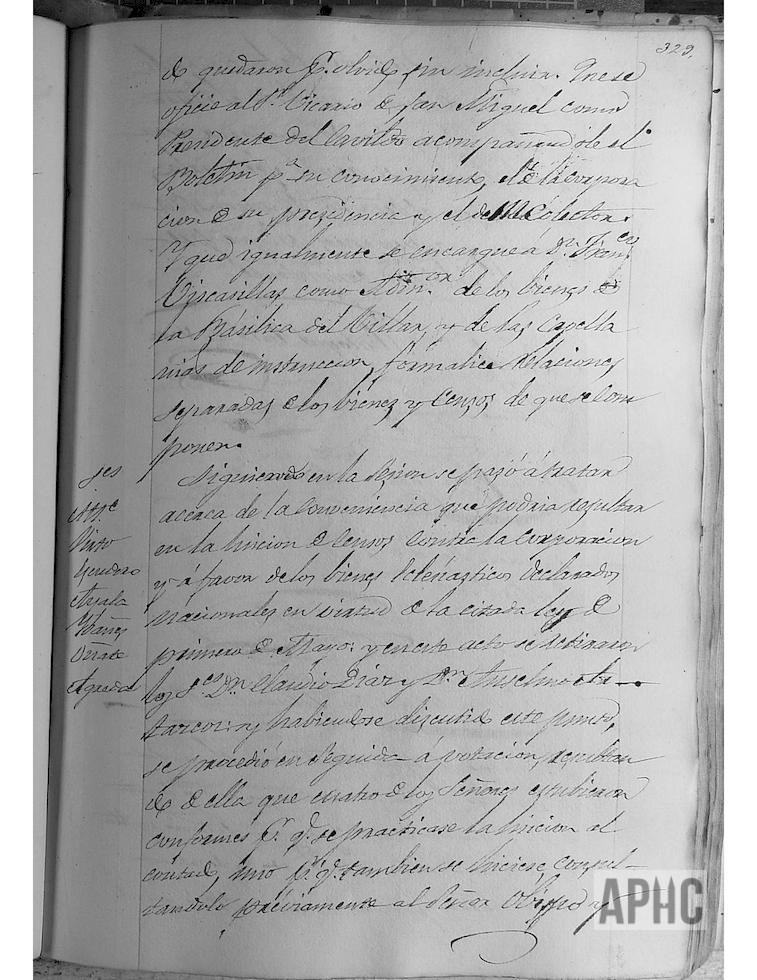 329.
do quedaron p.r olvido sin incluir. Que se
oficie al S.r Vicario de San Miguel como
Presidente del Cavildo acompañandole el
Boletin p.a su conocimiento, el de la corpora
cion de su presidencia y el del Colector.
Y que igualmente se encargue á D.n Fran.co
Viscasillas como Adm.or de los bienes de
la Básilica del Villar, y de las Capella
nias de instruccion, formalice relaciones
separadas de los bienes y Censos de que se com
ponen.
Siguiendo en la sesion se pasó á tratar
acerca de la conveniencia que podria resultar
en la luicion de Censos contra la Corporacion
y á favor de los bienes Eclesiasticos declarados
nacionales en virtud de la citada ley de
primero de Mayo: y en este acto se retiraron
los S.res D.n Claudio Diaz y D.n Anselmo
y habiendose discutido este punto,
se procedió en seguida á votacion, resultan
do de ella que cuatro de los Señores estubieron
conformes p.r q.e se practicase la luicion al
contado, uno p.r q.e tambien se hiciese consul-
tandolo préviamente al Señor Obispo y
Ayala
Ybañez
Oñate
Agreda
APHC